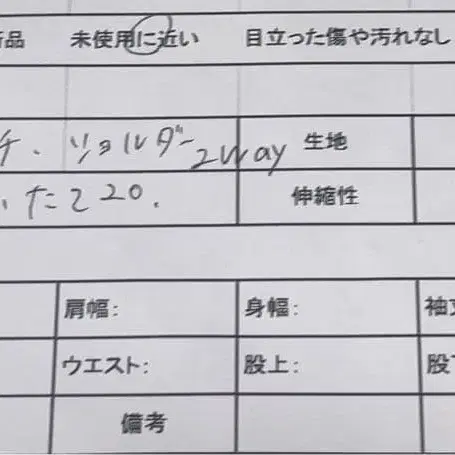 新品 未使用に近い 目立った傷や汚れなし
チ、ショルダー2way 生地
たて20. 伸縮性
肩幅: 身幅: 袖丈
ウエスト: 股上: 股下
備考